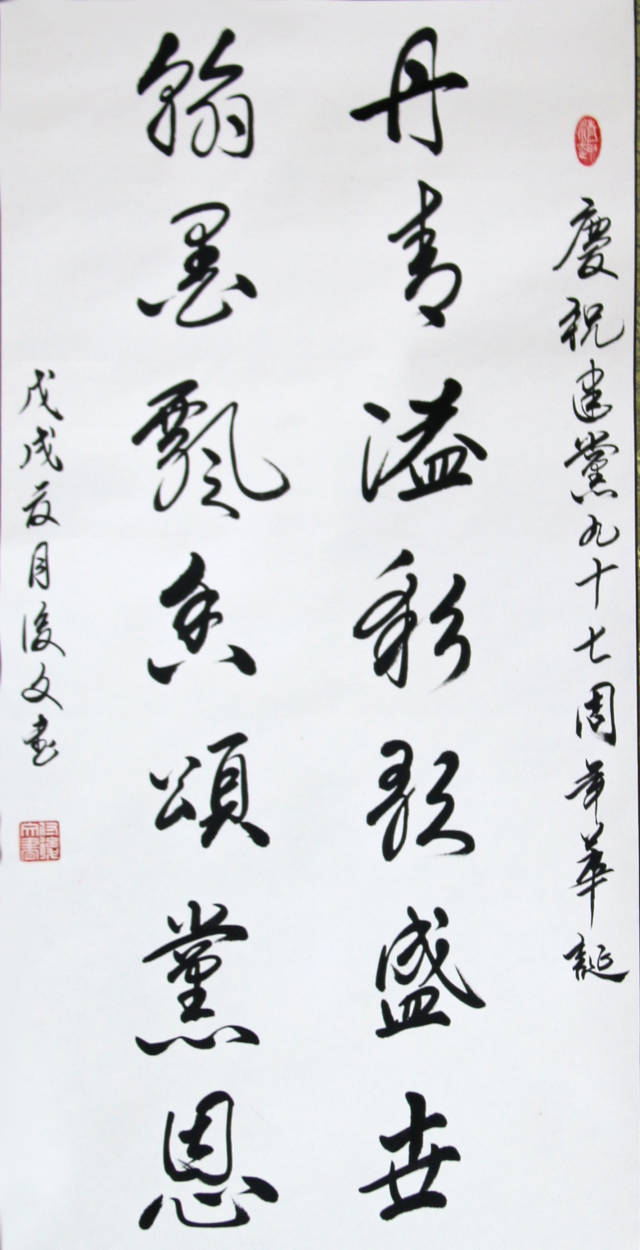 慶祝建黨九十七周年華誕
丹青溢彩歌盛世
翰墨飄香頌黨恩
戊戌夏月俊文書